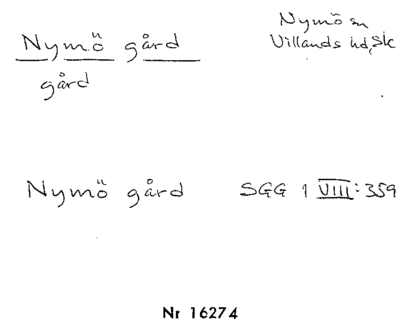 Nymö gård
gård
Nymö sn
Villands hd, Sk
Nymö gård SGG 1 VIII: 359
Nr 16274